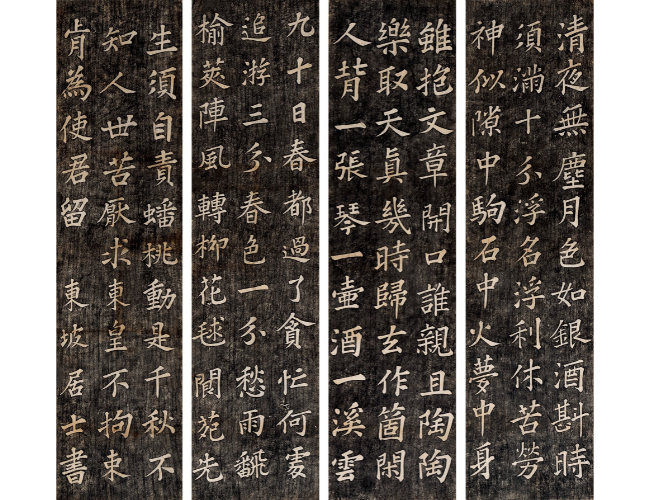 清夜無塵月色如銀酒斟時
須滿十分浮名浮利休苦勞
神似隙中駒石中火夢中身
雖抱文章開口誰親且陶陶
樂取天真幾時歸去作箇閑
人背一張琴一壺酒一溪雲
九十日春都過了貪忙何處
追游三分春色一分愁雨翻
榆莢陣風轉柳花毬閬苑先
生須自責蟠桃動是千秋不
知人世苦厭求東皇不拘束
肯為使君留 東坡居士書